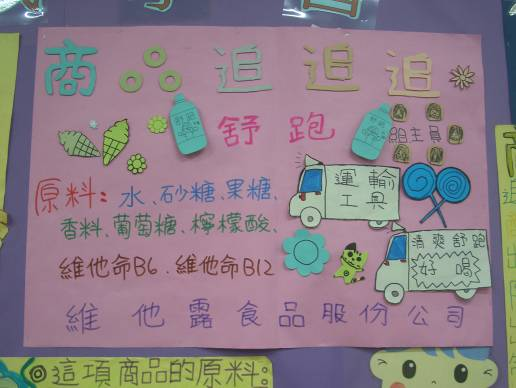 商品追追追
舒跑
組主員
原料:水、砂糖、果糖、
香料、葡萄糖、檸檬酸、
維他命B6、維他命B12
運輸
工具
清爽舒跑
好喝
維他露食品股份公司
這項商品的原料: